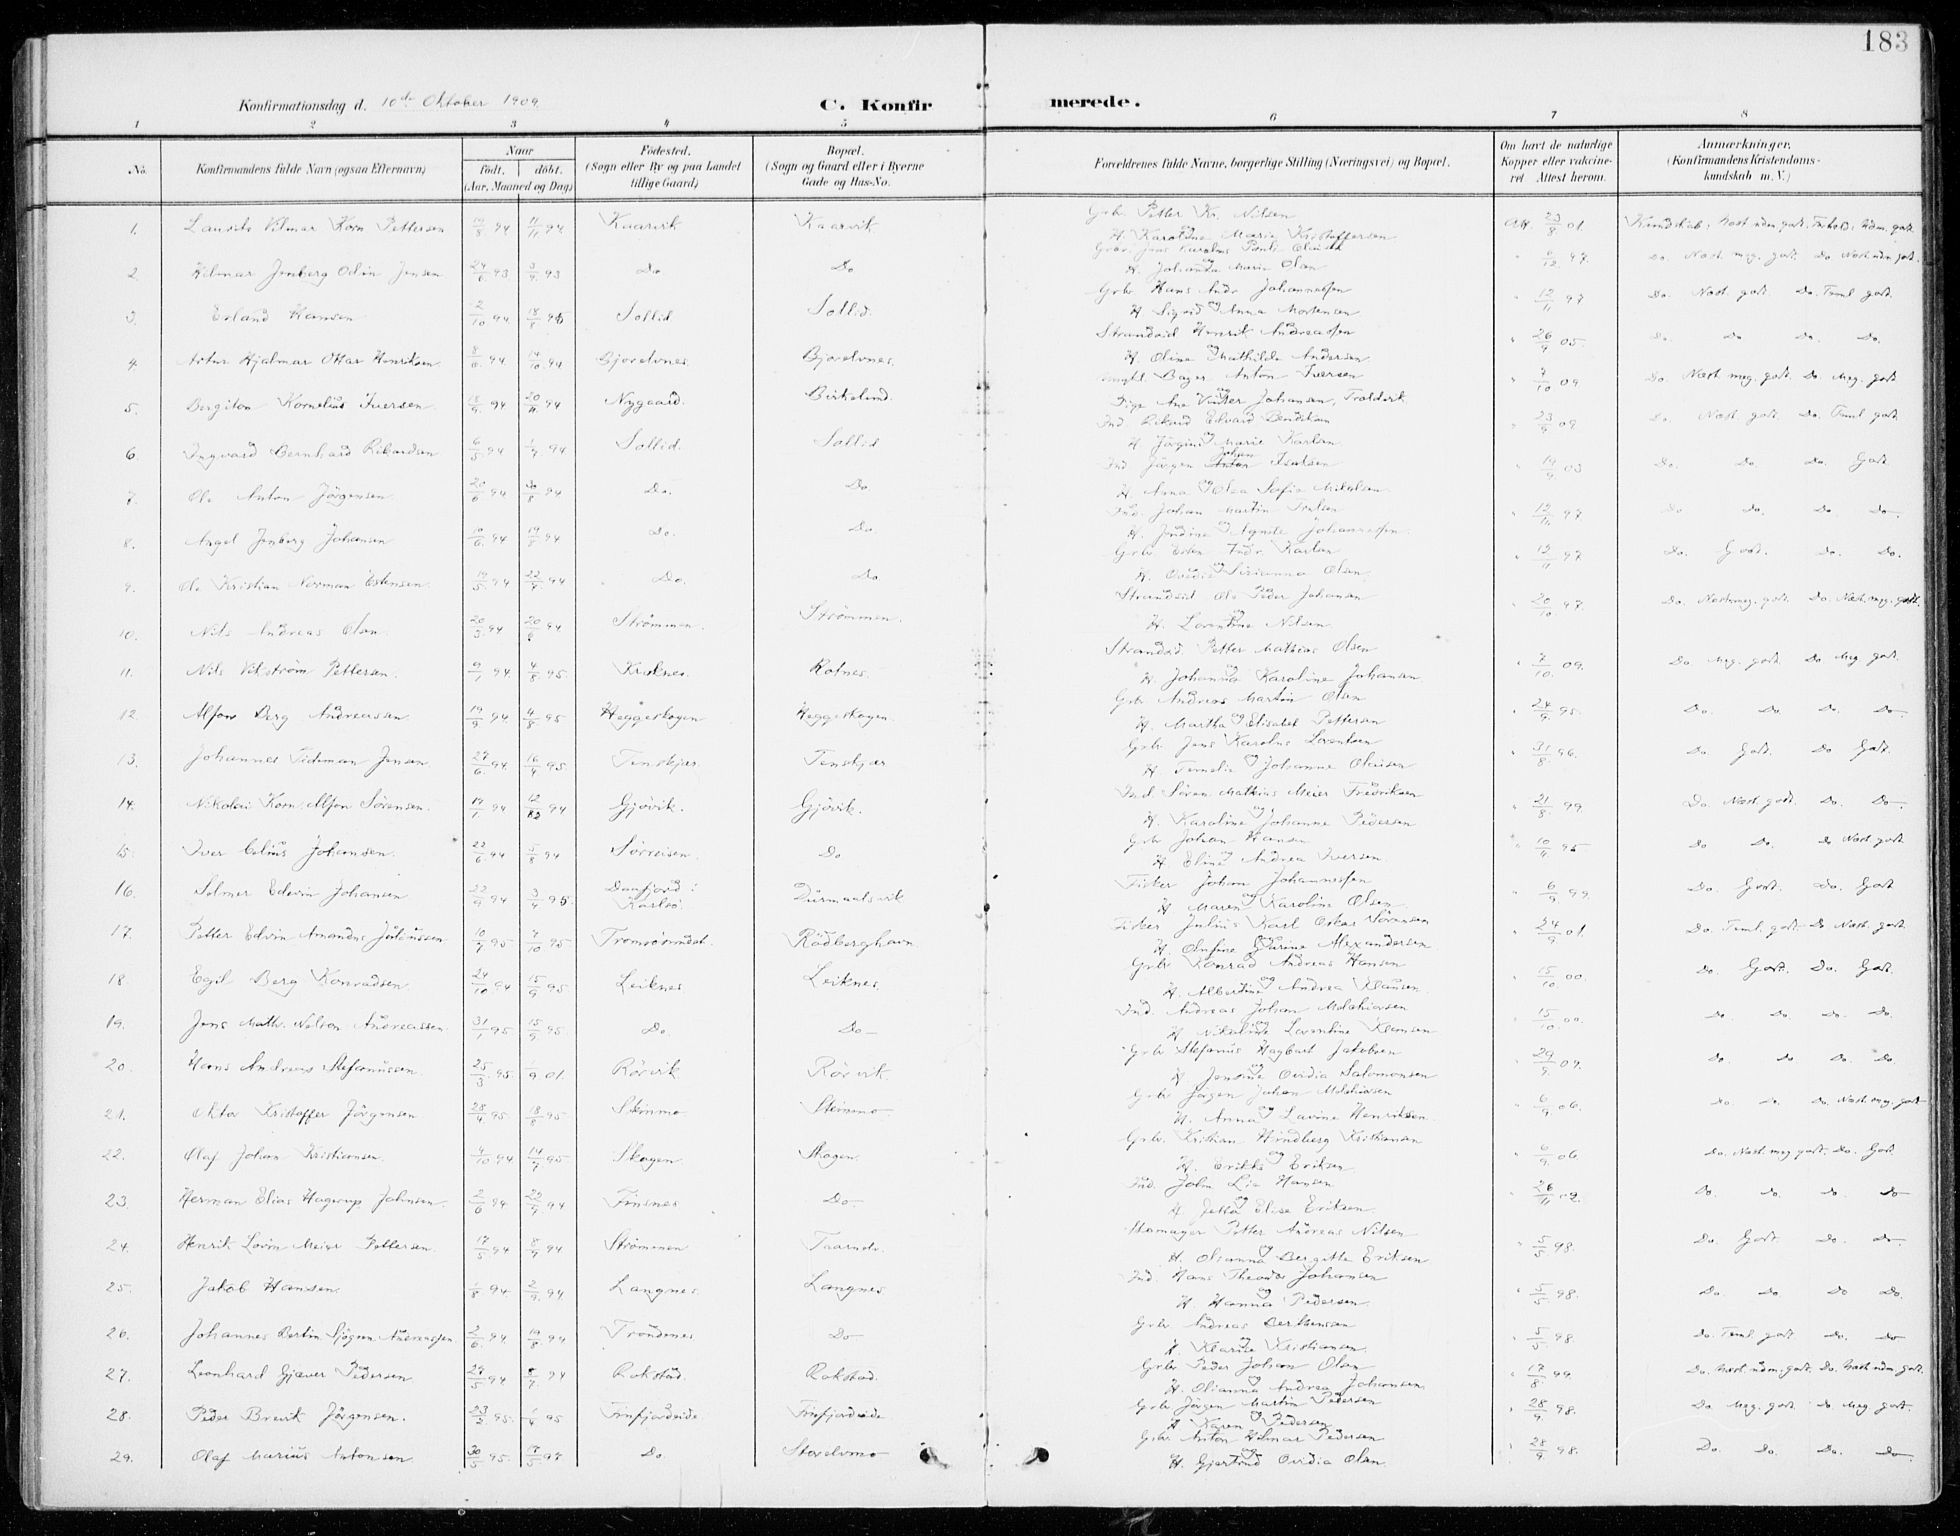 183
Konfirmationsdag d. 10de Oktober 1909.
C. Konfirmerede.
1 2 3 4 5 6 7 8
No.
Konfirmandens fulde Navn (ogsaa Efternavn)
Naar
födt. döbt.
(Aar, Maaned og Dag)
Födested.
(Sogn eller By og paa Landet
tillige Gaard)
Bopæl.
(Sogn og Gaard eller i Byerne
Gade og Hus-No.
Forældrenes fulde Navne, borgerlige Stilling (Næringsvei) og Bopæl.
Om havt de naturlige
Kopper eller vaksine-
ret Attest herom.
Anmærkninger,
(Konfirmandens Kristendoms-
kundskab m. V.)
1. Vilmar Korn Pettersen 94 11/11 94 Kaarvik Kaarvik Gbr. Petter Kr. Nilsen
H. Karoline Marie Kristoffersen Att. 23/8 01.
2. Hilmar Jenberg Odin Jensen 24/6 93 3/9 93 Do Do
H. Johanna Marie Olsen Do. Næst. meg. godt. Do
3. Erland Hansen 2/10 94 18/8 95 Sollid Sollid. Gbr. Hans Andr Johannessen
H. Sigrid Anna Mortensen 12/11 97 Do. Næst. godt. Do. Teml godt.
4. Artur Hjalmar Ottar Henriksen 8/6 94. 14/10 94 Bjorelvnes. Bjorelvnes. Strandsid Henrik Andreassen
H. Oline Mathilde Andersen 26/9 05. Do Do Do. Do.
5. Bergiton Kornelius Iversen 94 20/11 94 Nygaard. Birkelund. Anton Iversen
Pige Ane Johansen, 7/10 09 Do. Næst meg. godt. Do Meg. godt
6. Ingvard Bernhard Rikardsen 6/5 94 94 Sollid. Sollid Ind Rikard Edvard Bendiksen
H. Jörgine Marie Karlsen 23/9 09 Do Næst. godt. Do. Teml godt.
7. Ole Anton Jörgensen 20/6 94 94 Do. Do Ind. Jörgen Johan Isaksen
H. Anna Olea Sofie Mikalsen 19/9 03 Do. Do. Do. Godt
8. Angel Jenberg Johansen 94 94 Do. Do Ind. Johan Martin
H. Jendine Agnete Johannessen. 12/11 97 Do Do. Do Do.
9. Ole Kristian Norman Estensen. 94 94 Do. Do Gbr Esten Andr. Karlsen
H. Ovidia Olsen 12/11 97 Do. Godt. Do. Do.
10. Nils Andreas Olsen 20/3 94 20/6 94 Strømmen. Strømmen. Strandsid Ole Peder Johansen
H. Lorentine Nilsen 20/10 97. Do. Næst meg. godt. Do. Næst. meg. godt.
11. Nils Vikström Pettersen. 9/1 94. 4/8 95. Kraknes. Rotnes. Strandsid. Petter Mathias Olsen
H. Johanna Karoline Johansen 7/10. 09. Do. Meg. godt. Do Meg godt.
12. Alfon Berg Andreassen 19/9 94 4/8 95 Heggeskogen Heggeskogen. Gbr Andreas Martin Olsen
H. Martha Elisabet Pettersen 24/9 95. Do. Do. Do. Do.
13. Johannes Tideman Jensen 27/6 94. 95. Tenskjær Tenskjær Gbr. Jens Karolus Lorentsen
H. Johanne Olausen 31/8 96. Do Godt. Do Godt.
14. Nikolai Korn. Alfon Sörensen. 94 12/8 94 Gjövik. Gjövik. Ind. Sören Mathias Meier Fredriksen
H. Karoline Johanne Pedersen 21/8. 99 Do. Næst. godt. Do. Do.
15. Iver Celius Johansen. 22/6 94 5/8 94 Sörreisen. Do Gbr Johan Hansen
H. Eline Andrea Iversen. 10/11 95 Do Do. Do Næst. godt
16. Selmer Edevin Johansen 22/9 94 3/4 95. Danfjord i
Karlsö. Durmaalsvik Fisker Johan Johannessen
H. Maren Karoline Olsen 6/9 99. Do. Godt. Do. Godt
17. Petter Edvin Amandus Juliussen 10/7 95 7/10 95 Tromsösundet. Rödberghavn. Fisker Julius Karl Oskar Sörensen
H. Olufine Karine Alexandersen 24/9 01. Do. Teml. godt. Do Næst. godt.
18. Egil Berg Konradsen 24/10 94 15/9 95 Leiknes Leiknes. Gbr Konrad Andreas Hansen
H. Albertine Andrea Klausen. 15/10 00. Do. Godt. Do. Godt.
19. Jens Math. Nelson Andreassen. 31/1 95 15/9 95. Do. Do Ind. Andreas Johan Melchiorsen
H. Nikoline Lorentine Klausen 15/10 00. Do Do. Do Do.
20. Hans Andreas Stefanussen. 25/3 95. 1/9 01. Rörvik. Rörvik. Gbr Stefanus Hagbart Jakobsen
H Jensine Ovidia Salomonsen 29/9. 09. Do Do Do Do
21. Oktav Kristoffer Jörgensen 28/4 95 18/8 95. Steinmo Steinmo Gbr Jörgen Johan Melchiorsen
H. Anna Lavine Henriksen. 6/9 06. Do. Do. Do. Næst. meg. godt
22. Olaf Johan Kristiansen. 4/10 94. 14/7 95. Skogen Skogen. Gbr. Kristian Hindberg Kristiansen
H. Erikke Eriksen. 6/9. 06. Do. Næst. meg godt. Do. Godt.
23. Herman Elias Hagerup Johnsen. 2/6 94 22/7 94 Finsnes Do Ind. John Lie Hansen
H. Jetta Elise Eriksen. 26/11 02. Do. Do. Do. Do
24. Henrik Lovin Meier Pettersen. 17/5 94 8/7 94 Strömmen Taarnelv. Petter Andreas Nilsen
H. Olianna Bergitte Eriksen 5/5 98. Do. Godt. Do. Do.
25. Jakob Hansen. 1/8 94 2/9. 94 Langnes. Langnes Ind. Hans Theodor Johansen
H. Hanna Pedersen 5/5 98. Do. Do. Do Do.
26. Johannes Bertin Sjögren Andreassen 2/6. 94 19/8 94 Trondenes Do Gbr. Andreas Bertheussen
H. Klarise Kristiansen. 5/5. 98. Do. Teml. godt Do. Do
27. Leonhard Gjæver Pedersen 27/5 94 8/7. 94 Rokstad. Rokstad. Gbr. Peder Johan Olsen
H. Olianna Andrea Johansen. 17/8. 99. Do. Næst. udm. godt. Do. Næst udm. godt.
28. Peder Brevik Jörgensen. 23/2 95. 95 Finfjordeide. Finfjordeide Gbr Jörgen Martin Pedersen
H Karen Pedersen 28/9. 98. Do Meg. godt. Do Meg godt.
29. Olaf Marius Antonsen 30/3 95. 17/5 95 Do. Storelvmo Gbr. Anton Hilmar Pedersen
H. Gjertrud Ovidia Olsen 28/9 98. Do. Do. Do. Do